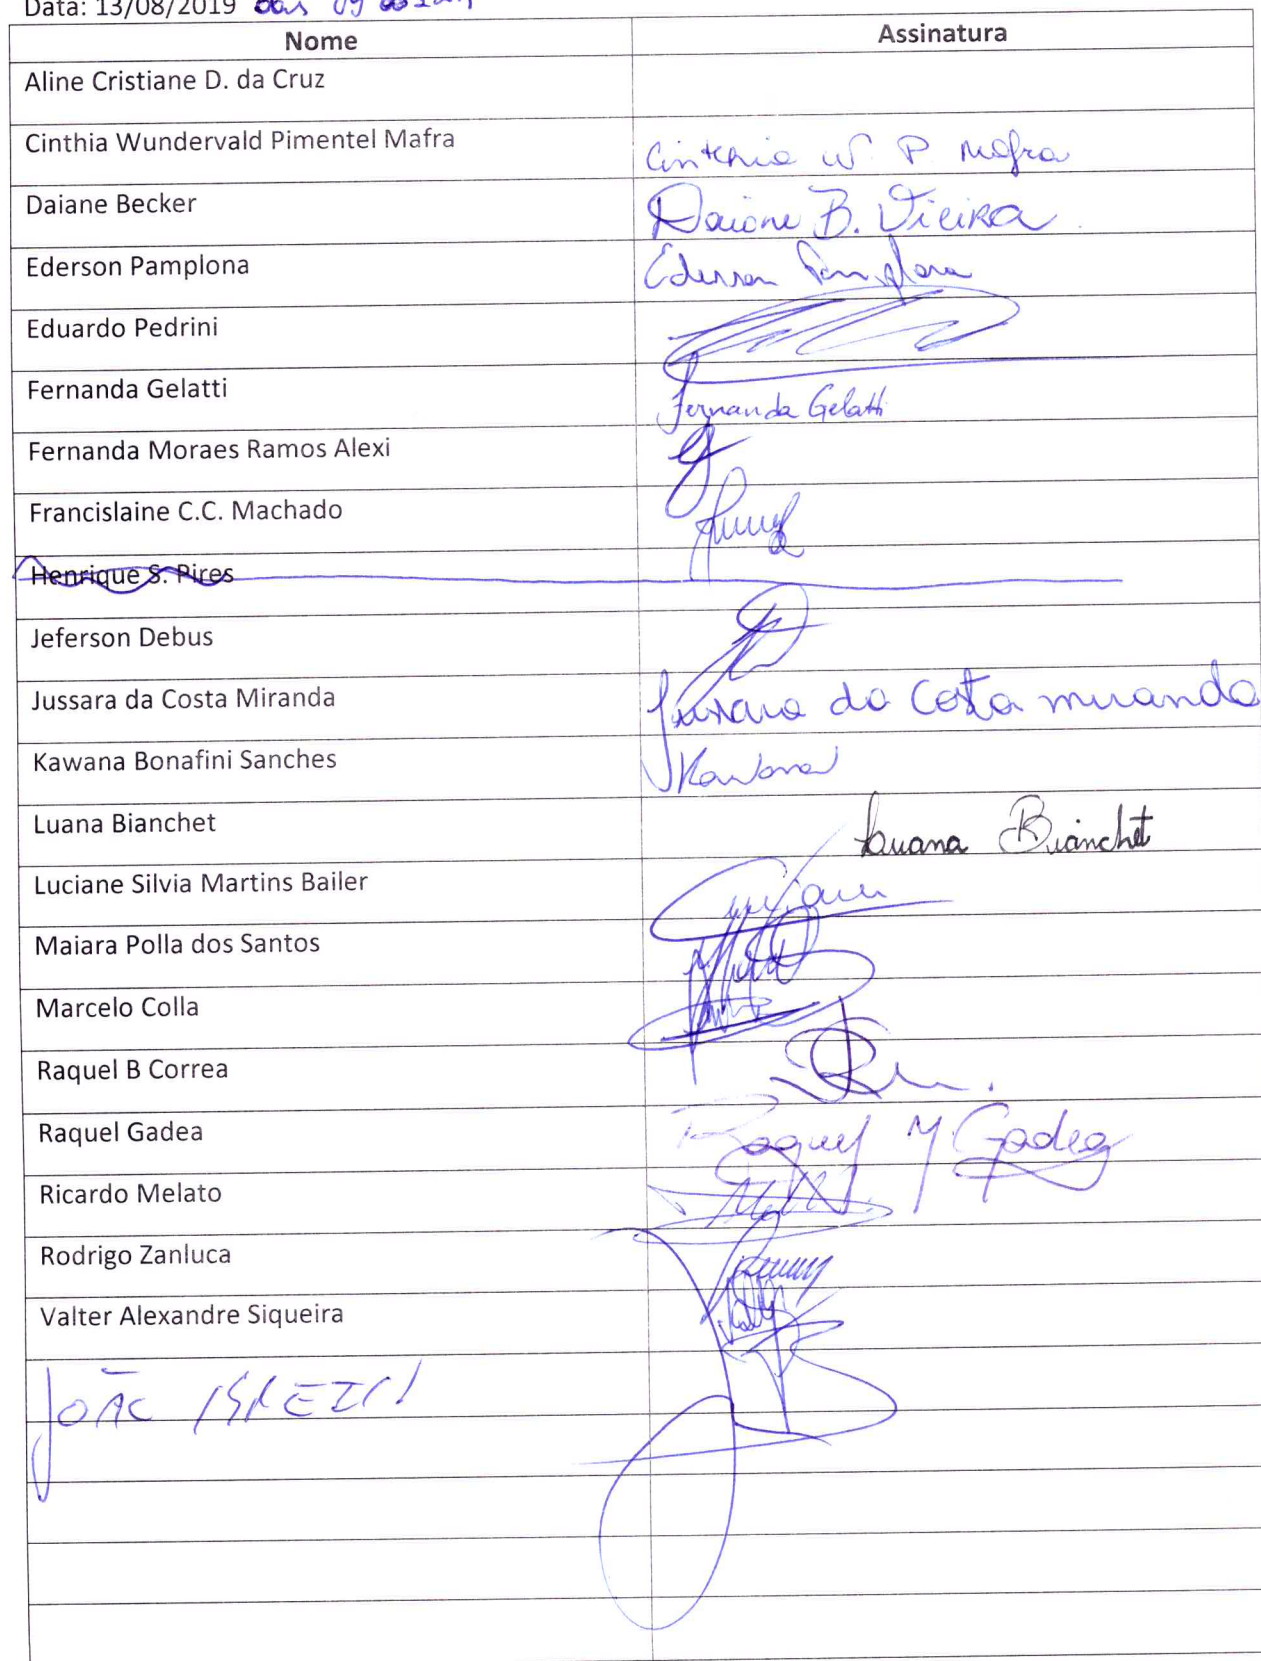 Data: 13/08/2019 das 09 às
Nome Assinatura
Aline Cristiane D. da Cruz
Cinthia Wundervald Pimentel Mafra Cinthia W. P Mafra
Daiane Becker Daiane B. Vieira
Ederson Pamplona Ederson Pamplona
Eduardo Pedrini
Fernanda Gelatti Fernanda Gelatti
Fernanda Moraes Ramos Alexi
Francislaine C.C. Machado
Henrique S. Pires
Jeferson Debus
Jussara da Costa Miranda Jussara da Costa Miranda
Kawana Bonafini Sanches Kawana
Luana Bianchet Luana Bianchet
Luciane Silvia Martins Bailer Luciane
Maiara Polla dos Santos
Marcelo Colla
Raquel B Correa
Raquel Gadea Raquel M. Gadea
Ricardo Melato
Rodrigo Zanluca
Valter Alexandre Siqueira
João